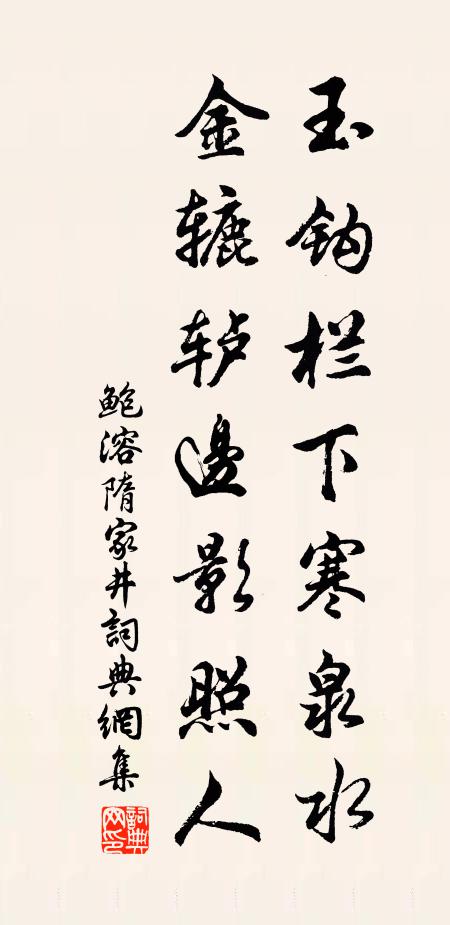 玉钩栏下寒泉水
金辘轳边影照人
鲍溶隋家井詞典網集
詞典網印